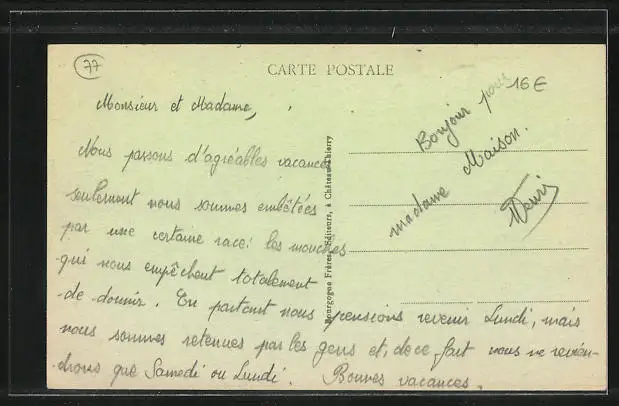 77
CARTE POSTALE
16€
Monsieur et Madame,
Nous passons d'agréables vacances
seulement nous sommes embêtées
par une certaine race: les mouches
qui nous empêchent totalement
de dormir. En partant nous pensions revenir Lundi, mais
nous sommes retenues par les gens et, de ce fait nous ne revien-
drons que Samedi ou Lundi. Bonnes vacances.
Bourgogne Frères, Editeurs, à Château-Thierry
Bonjour pour
madame Maison.
Henri